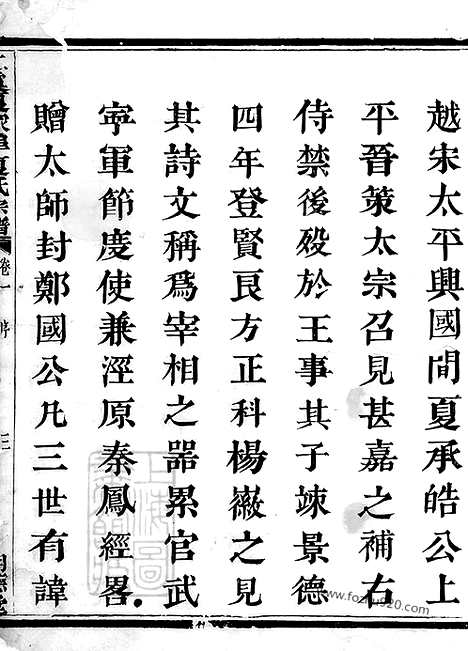 越宋太平興國間夏承皓公上
平晉策太宗召見甚嘉之補右
侍禁後殁於王事其子竦景德
四年登賢良方正科楊徽之見
其詩文稱爲宰相之器累官武
寧軍節度使兼涇原秦鳳經畧
贈太師封鄭國公凡三世有諱
夏氏宗譜
卷一
三
www.fozhu920.com